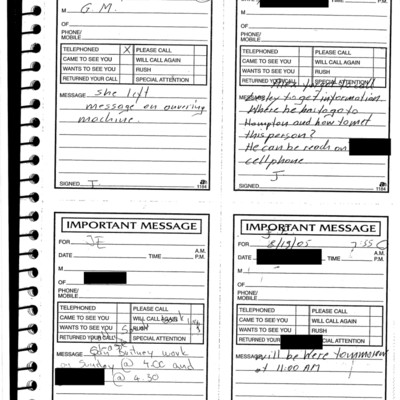 M G.M.
OF
PHONE/
MOBILE
TELEPHONED X PLEASE CALL
CAME TO SEE YOU WILL CALL AGAIN
WANTS TO SEE YOU RUSH
RETURNED YOUR CALL SPECIAL ATTENTION
MESSAGE she left
message on
machine.
SIGNED T. 1184
M
OF
PHONE/
MOBILE
TELEPHONED PLEASE CALL
CAME TO SEE YOU WILL CALL AGAIN
WANTS TO SEE YOU RUSH
RETURNED YOUR CALL SPECIAL ATTENTION
to get information
Where he has to go to
Hampton and how to met
this person?
He can be reach on
cellphone
J
SIGNED 1184
IMPORTANT MESSAGE
FOR JE
DATE TIME A.M.
P.M.
M
OF
PHONE/
MOBILE
TELEPHONED PLEASE CALL
CAME TO SEE YOU WILL CALL AGAIN
WANTS TO SEE YOU RUSH
RETURNED YOUR SPECIAL ATTENTION
MESSAGE work
on Sunday @ 4:00 and
@ 4:30
IMPORTANT MESSAGE
FOR 8/19/05 7:55
DATE TIME A.M.
P.M.
M
OF
PHONE/
MOBILE
TELEPHONED PLEASE CALL
CAME TO SEE YOU WILL CALL AGAIN
WANTS TO SEE YOU RUSH
RETURNED YOUR SPECIAL ATTENTION
MESSAGE will be here tommorow
at 11:00 AM